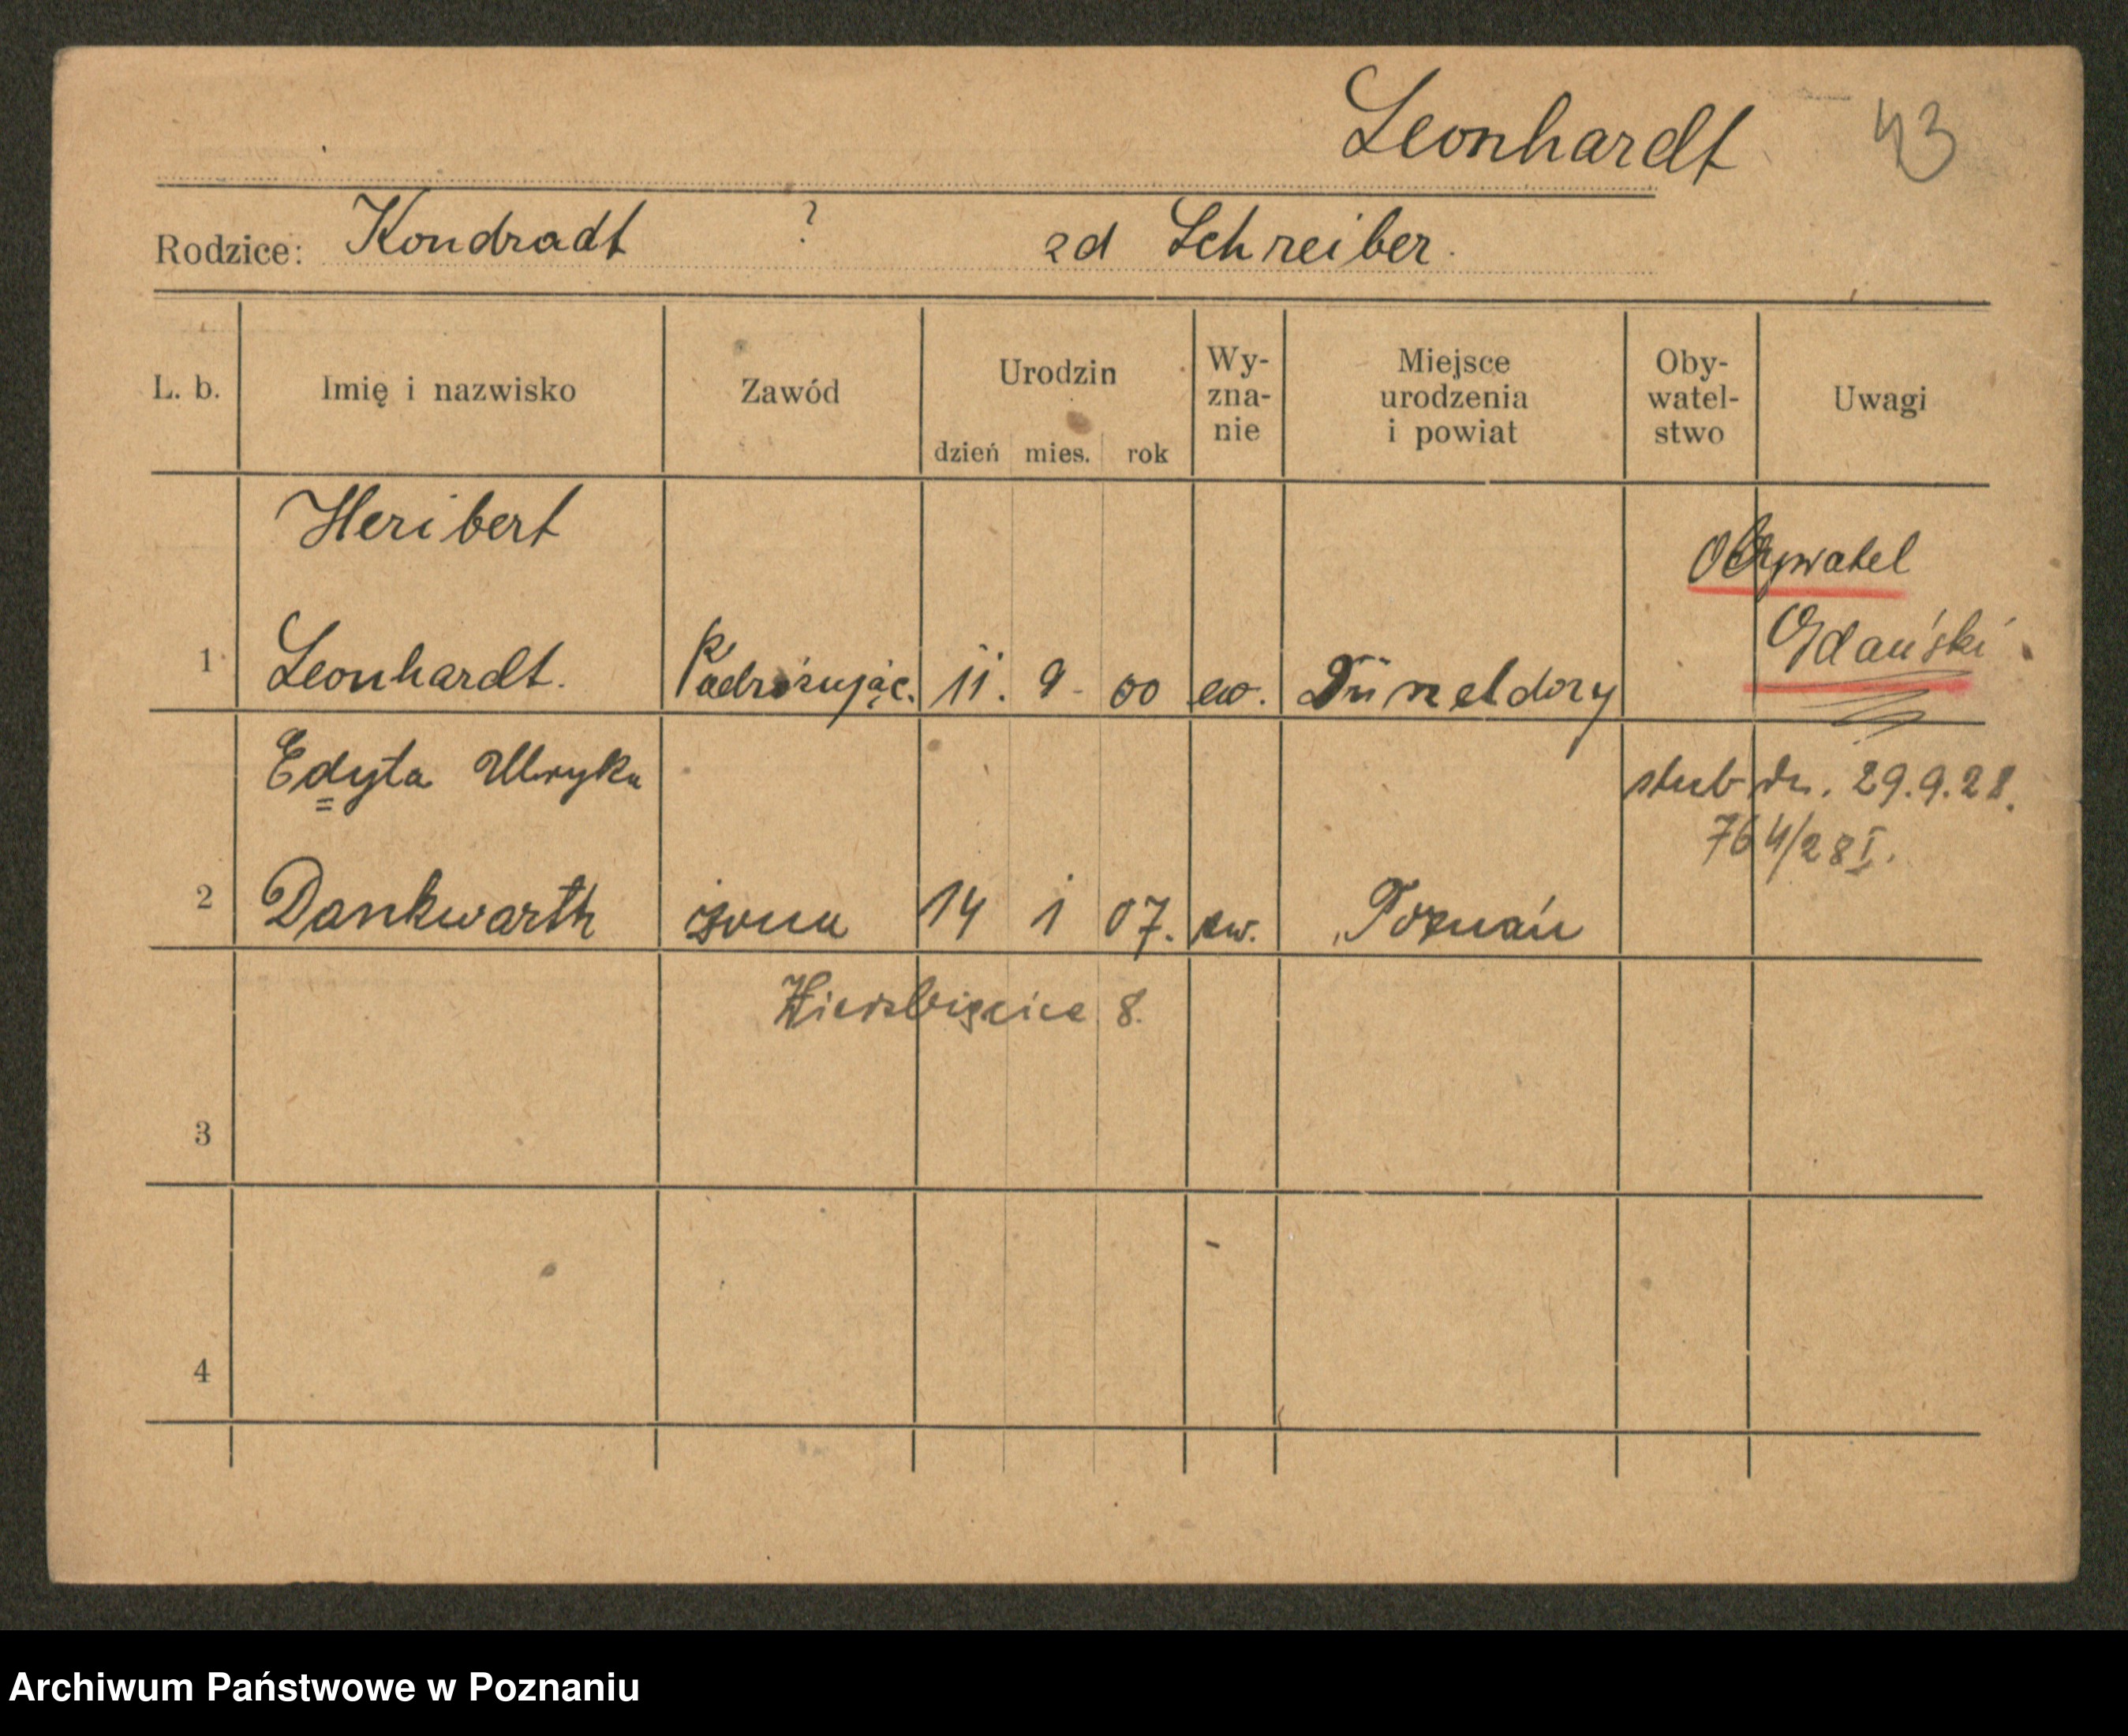 Leonhardt 43
Rodzice: Kondradt ? zd Schreiber.
L. b. Imię i nazwisko Zawód Urodzin dzień mies. rok Wy-zna-nie Miejsce urodzenia i powiat Oby-watel-stwo Uwagi
Heribert
Obywatel
Gdański
1 Leonhardt. Podróżując. 11. 9 - 00 ew.
Edyta Ulryka
ślub dn. 29.9.28.
764/28 I.
2 Dankwarth żona 14 1 07. ew. Poznań
Wierzbięcice 8.
3
4
Archiwum Państwowe w Poznaniu